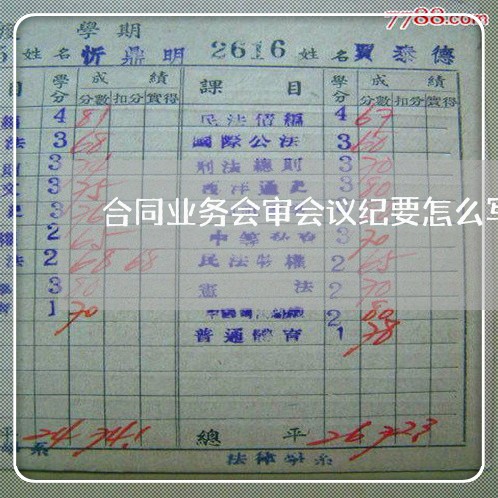 7788.com
學期
姓名 忻鼎明 2616 姓名 賈泰德
目 學分 成績 課目 學分 成績
分數 扣分 實得 分數 扣分 實得
4 81 民法債編 4 67
法 3 68 國際公法 3 60
3 刑法總則 3 70
3 75 西洋通史 3 80
合同业务会审会议纪要怎么写
2 65 3 70
法 2 68 68 民法物權 2 65
3 80 憲法 2 70
1 70 2 80
普通體育 1 78
平 24 74.1 總平 26 72.3
系 法律學系